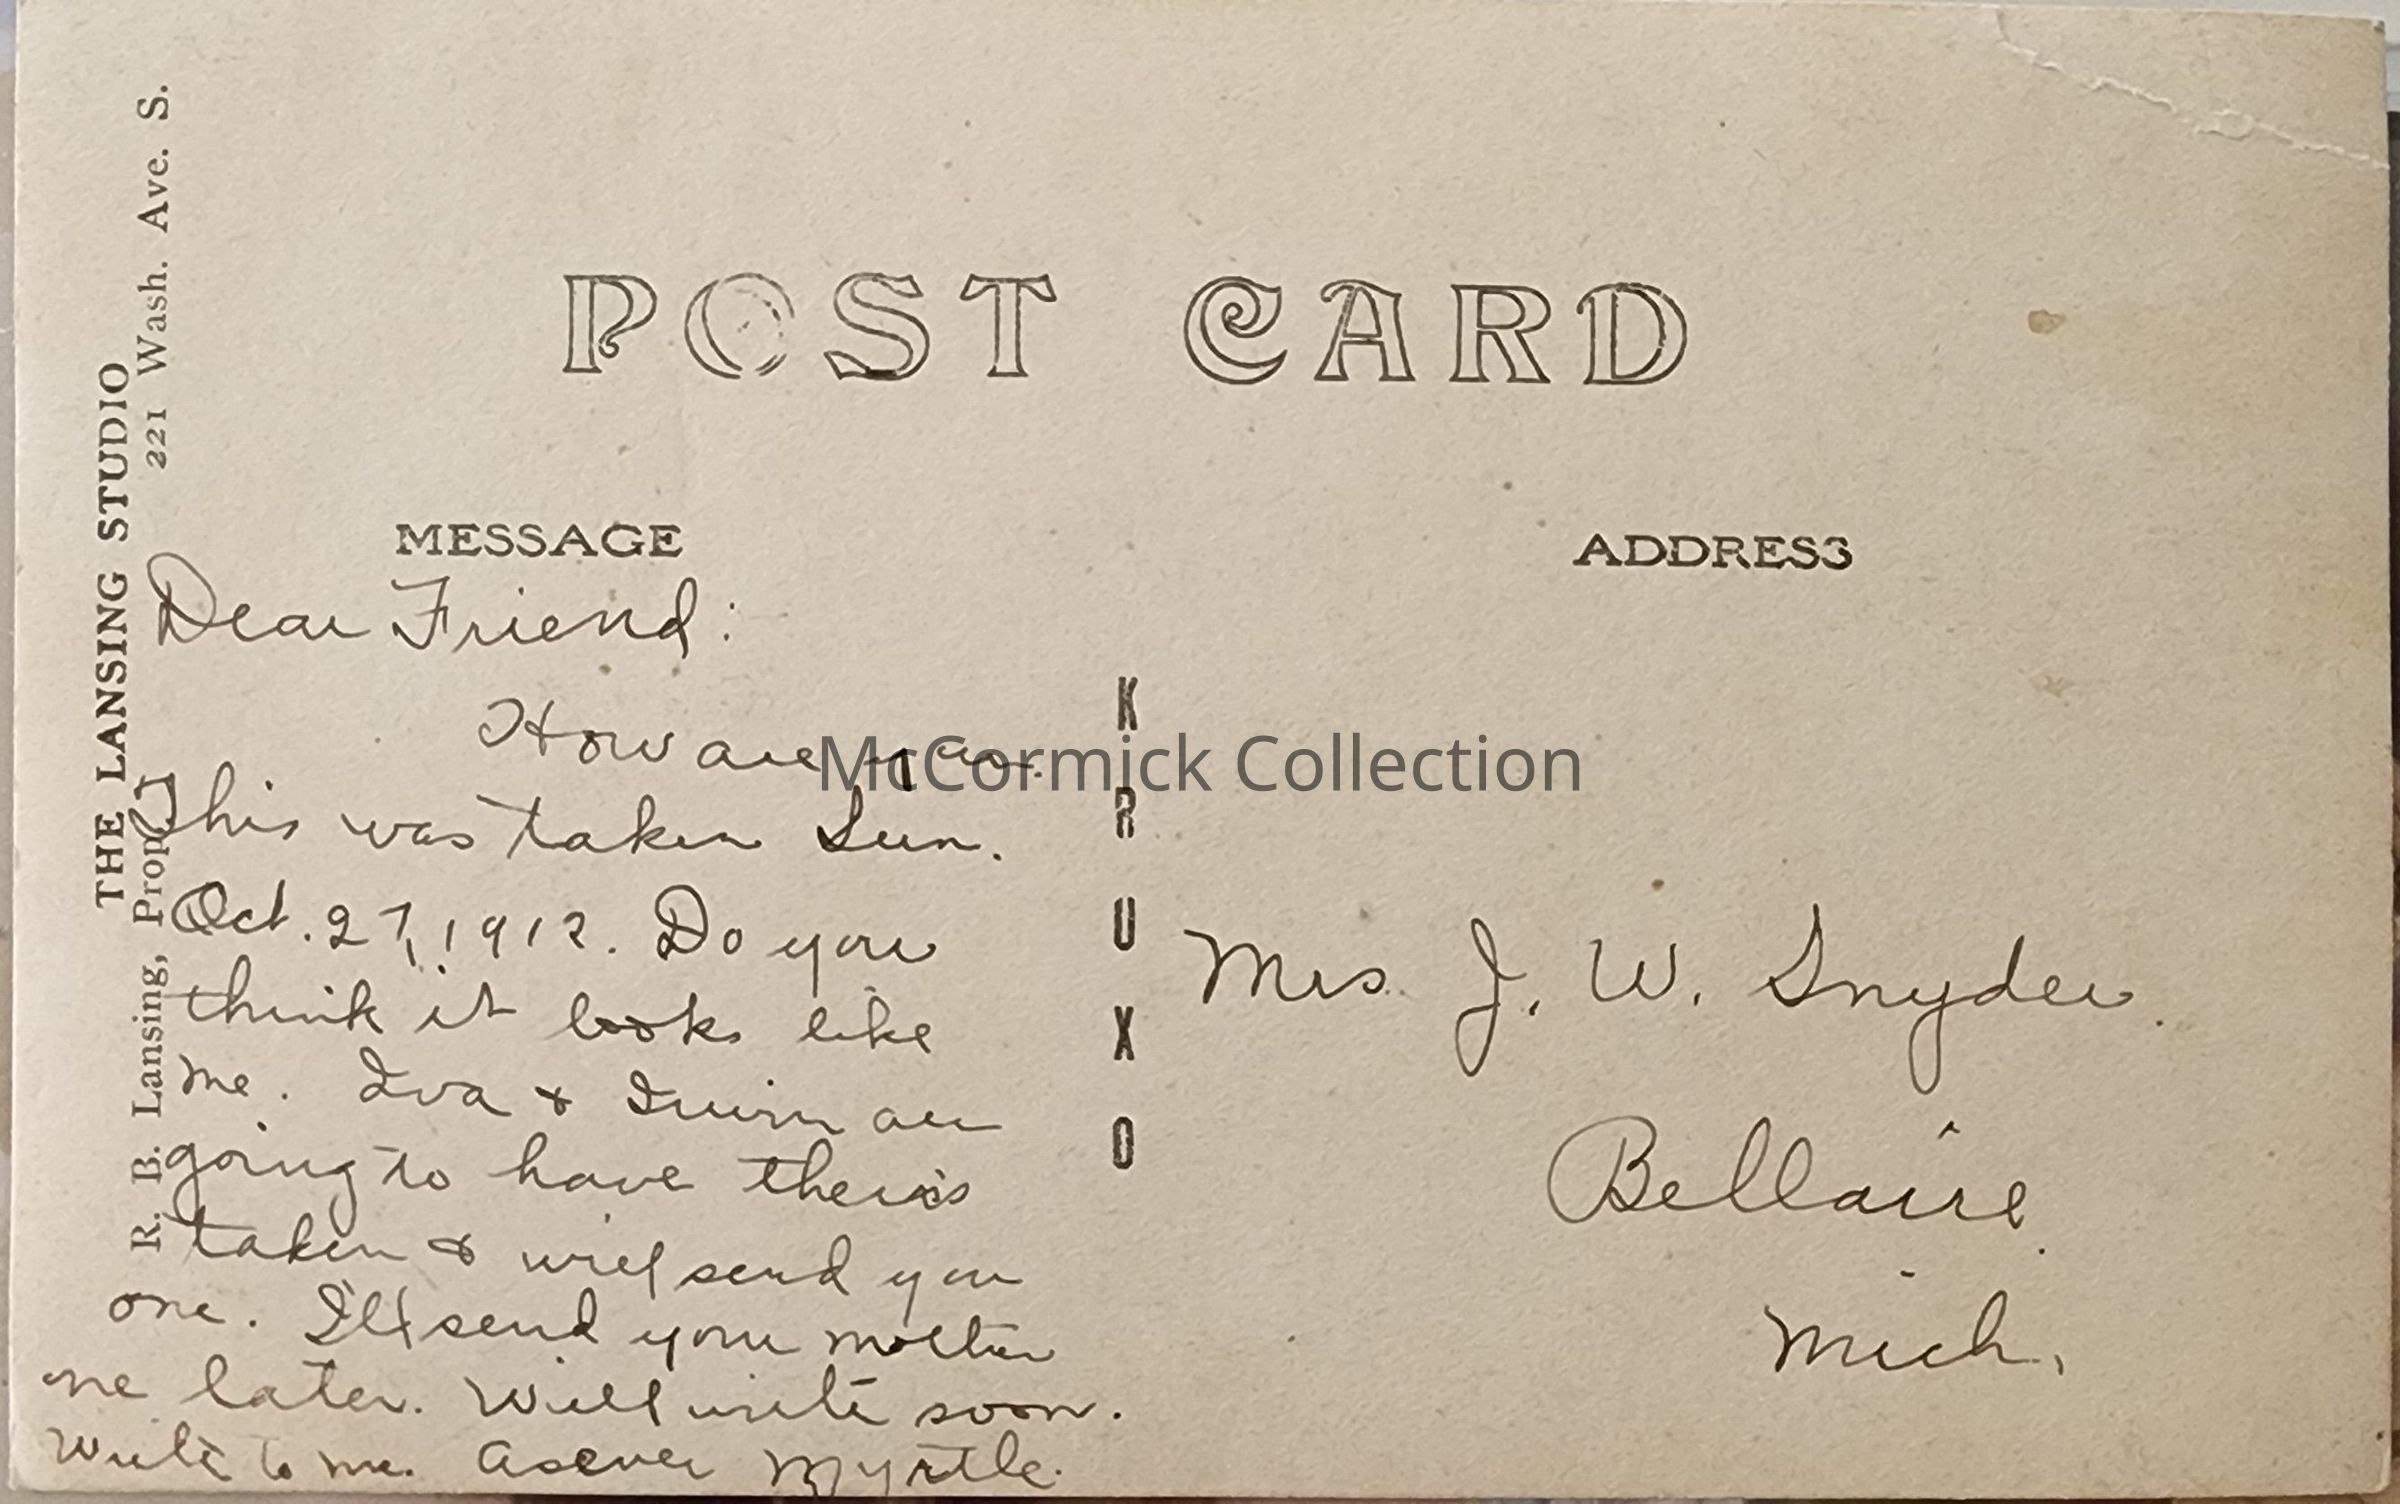 POST CARD
THE LANSING STUDIO
R. B. Lansing, Prop. 221 Wash. Ave. S.
MESSAGE
Dear Friend:
How are you.
This was taken Sun.
Oct. 27, 1912. Do you
think it looks like
me. Iva & Irwin are
going to have theirs
taken & will send you
one. I'll send your mother
one later. Will write soon.
Write to me. As ever Myrtle.
K
R
U
X
O
ADDRESS
Mrs. J. W. Snyder.
Bellaire.
Mich.
McCormick Collection